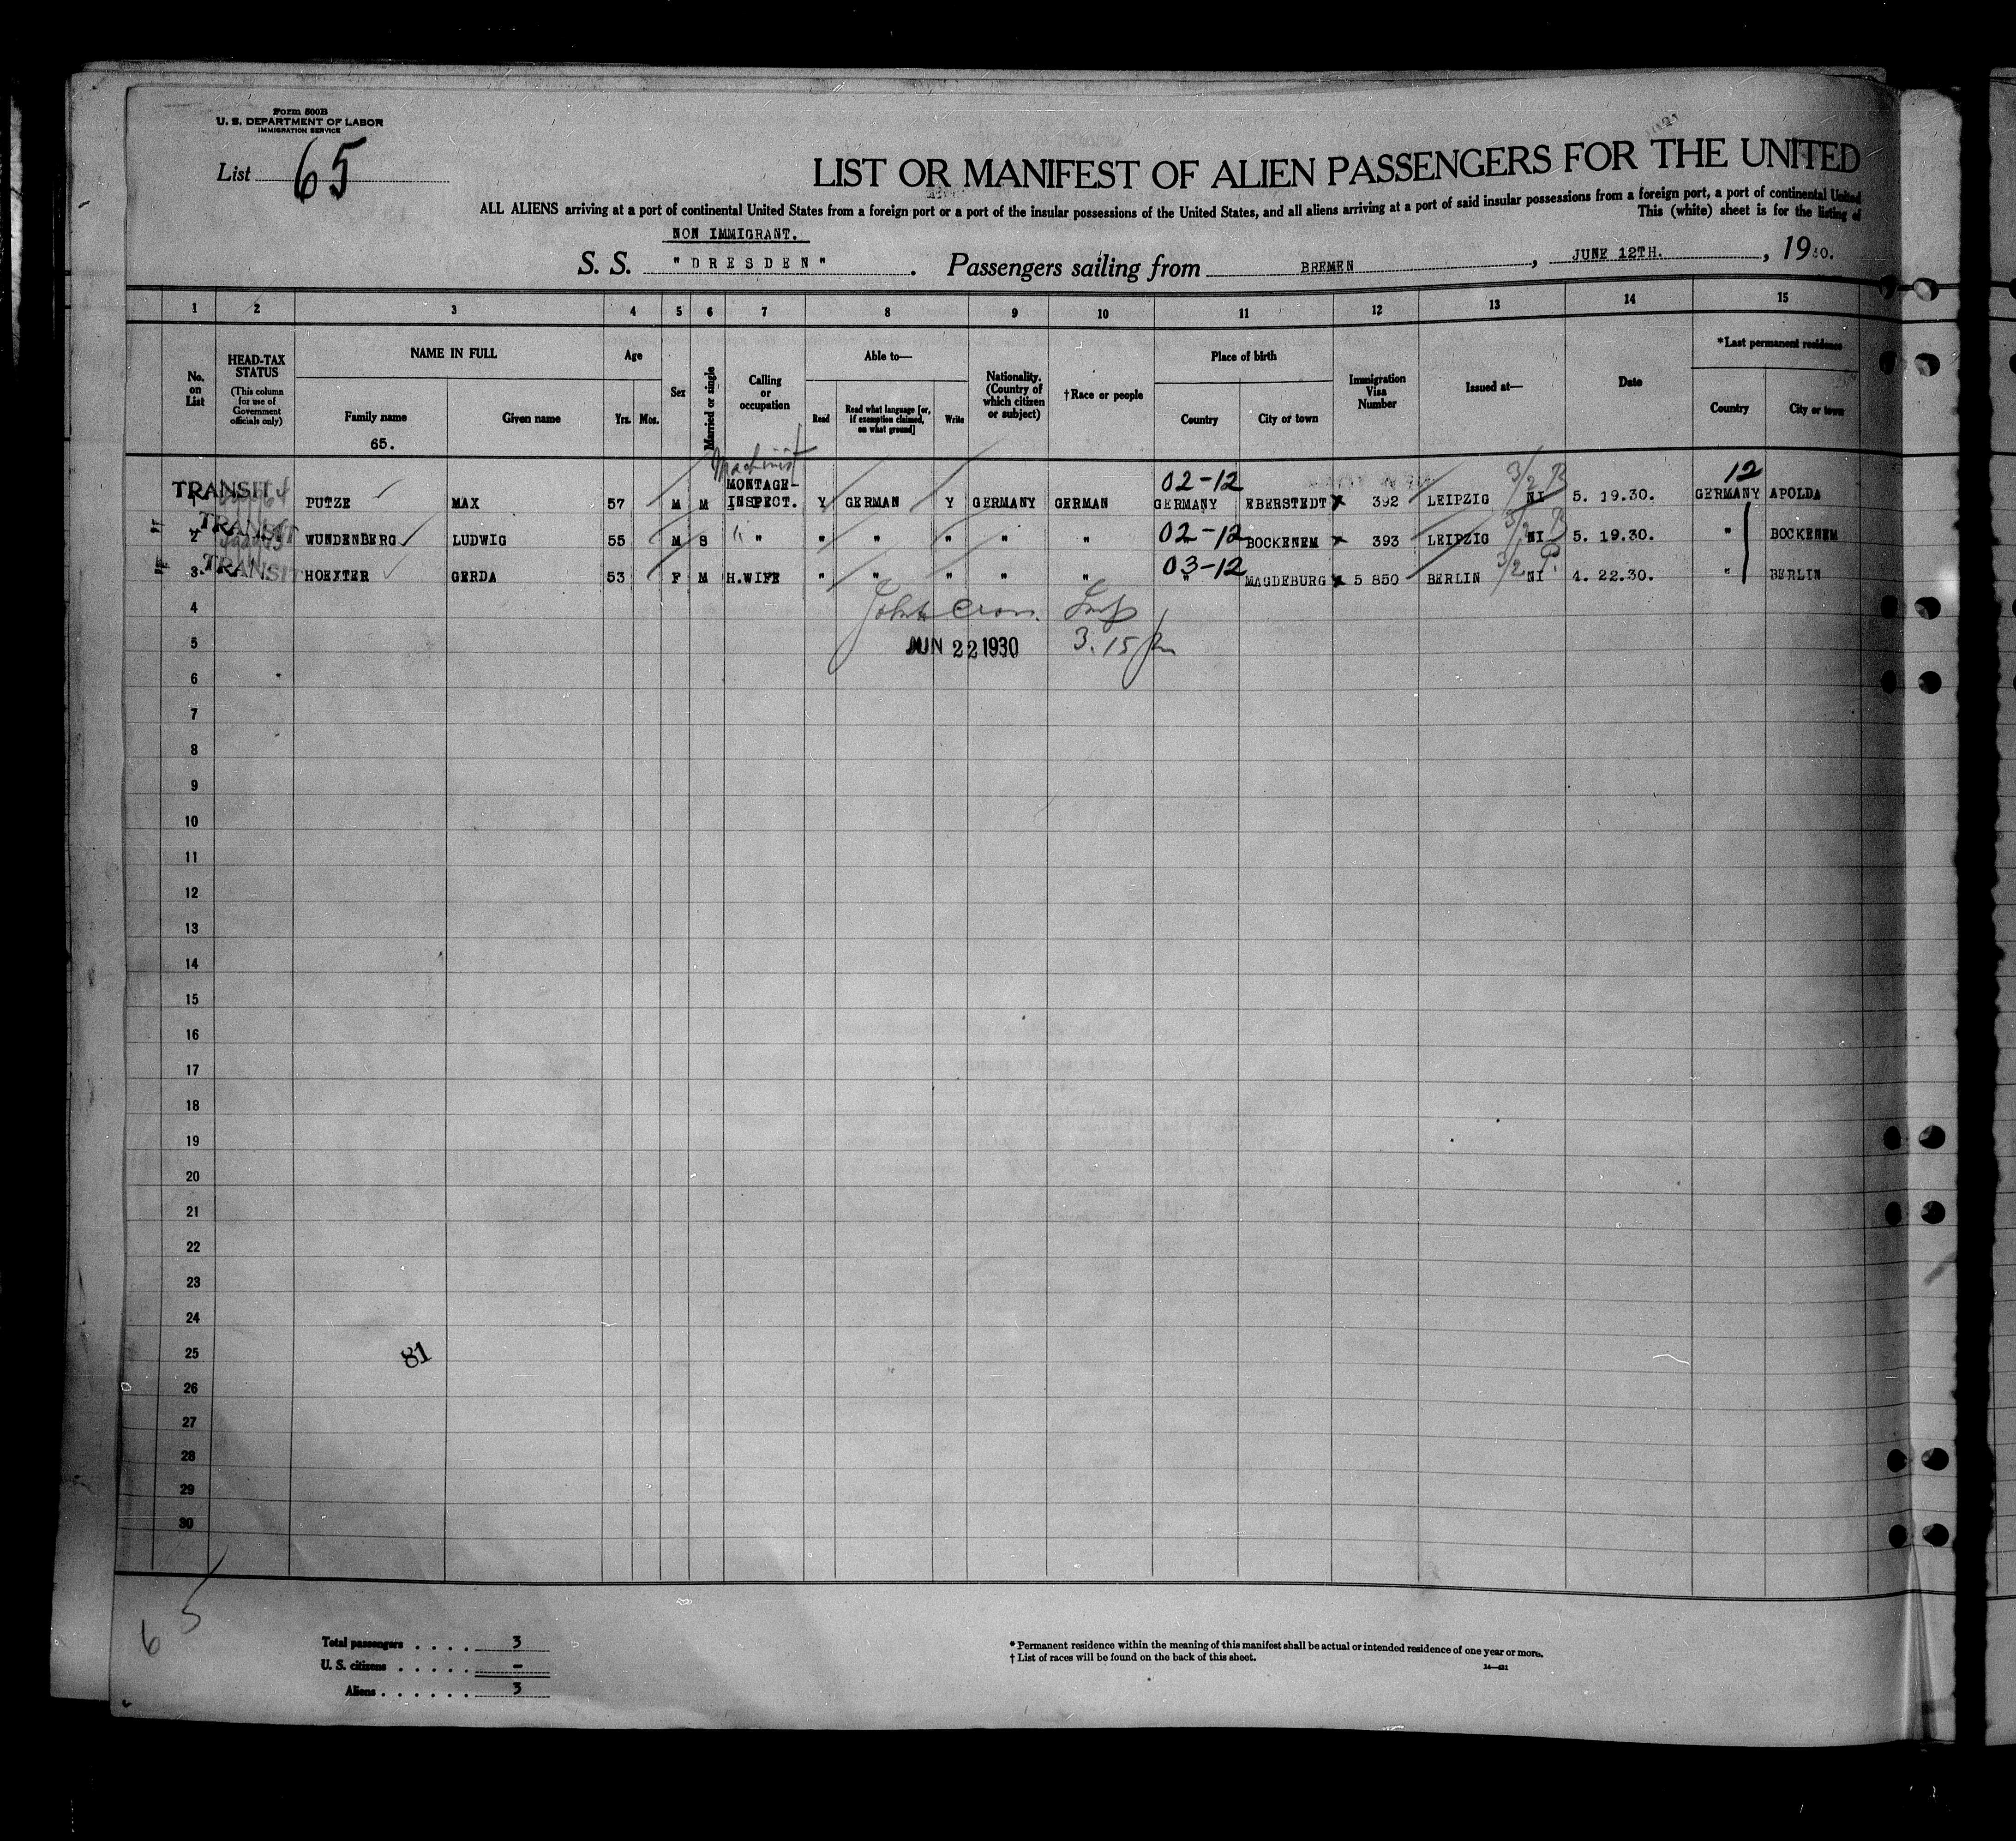 Form 500B
U. S. DEPARTMENT OF LABOR
IMMIGRATION SERVICE
List 65
LIST OR MANIFEST OF ALIEN PASSENGERS FOR THE UNITED
ALL ALIENS arriving at a port of continental United States from a foreign port or a port of the insular possessions of the United States, and all aliens arriving at a port of said insular possessions from a foreign port, a port of continental United
This (white) sheet is for the listing of
NON IMMIGRANT.
S. S. "DRESDEN". Passengers sailing from BREMEN, JUNE 12TH., 1930.
1 2 3 4 5 6 7 8 9 10 11 12 13 14 15
No. on List
HEAD-TAX STATUS
(This column for use of Government officials only)
NAME IN FULL
Family name
Given name
65.
Age
Yrs. Mos.
Sex
Married or single
Calling or occupation
Able to—
Read
Read what language [or, if exemption claimed, on what ground]
Write
Nationality. (Country of which citizen or subject)
†Race or people
Place of birth
Country
City or town
Immigration Visa Number
Issued at—
Date
*Last permanent residence
Country
City or town
Machinist
02-12 3/2 12
TRANSIT 1 PUTZE MAX 57 M M MONTAGE-INSPECT. Y GERMAN Y GERMANY GERMAN GERMANY EBERSTEDT 392 LEIPZIG NI 5. 19.30. GERMANY APOLDA
02-12 3/2
TRANSIT 2 WUNDENBERG LUDWIG 55 M S " " " " " " " BOCKENEM 393 LEIPZIG NI 5. 19.30. " BOCKENEM
03-12 3/2 P.
TRANSIT 3 HOEXTER GERDA 53 F M H.WIFE " " " " " " MAGDEBURG 5 850 BERLIN NI 4. 22.30. " BERLIN
4
5 JUN 22 1930 3.15 pm
6
7
8
9
10
11
12
13
14
15
16
17
18
19
20
21
22
23
24
25 81
26
27
28
29
30
65
Total passengers . . . . 3
U. S. citizens . . . . . -
Aliens . . . . . . 3
* Permanent residence within the meaning of this manifest shall be actual or intended residence of one year or more.
† List of races will be found on the back of this sheet.